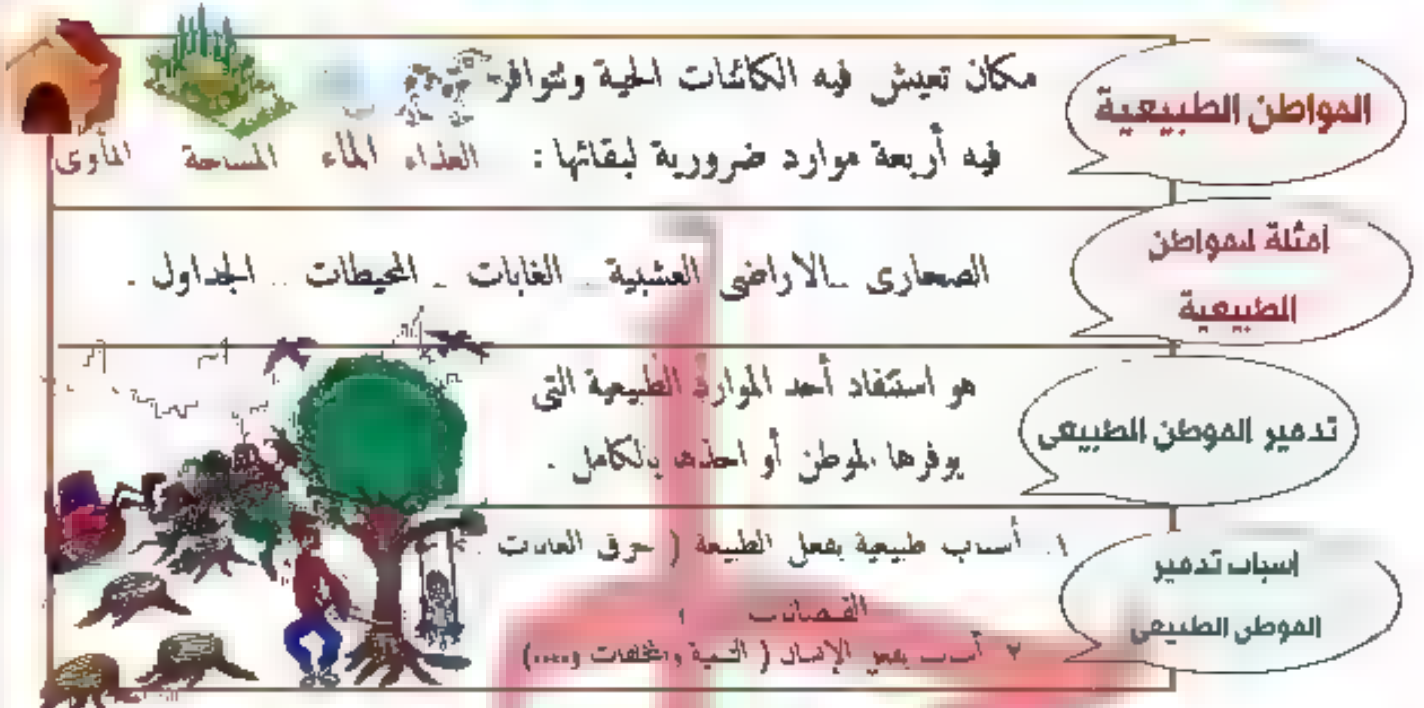 المواطن الطبيعية
مكان تعيش فيه الكائنات الحية وتتوافر
فيه أربعة موارد ضرورية لبقائها : الغذاء الماء المساحة المأوى
امثلة لمواطن
الطبيعية
الصحارى - الاراضى العشبية - الغابات - المحيطات - الجداول .
تدمير الموطن الطبيعى
هو استنفاد أحد الموارد الطبيعية التى
يوفرها الموطن أو أخذها بالكامل .
اسباب تدمير
الموطن الطبيعى
١. أسباب طبيعية بفعل الطبيعة ( حرق الغابات .
٢ أسباب بفعل الإنسان ( والمخلفات و....)